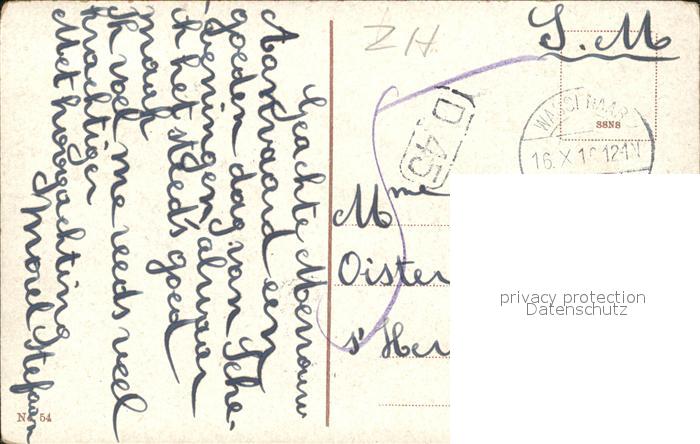 Geachte Mevrouw
Aanvaard een
goeden dag van Sche-
veningen alwaar
ik het steeds goed
maak
Ik voel me reeds veel
krachtiger
Met hoogachting
Morel Stefaan
ZH
S.M
D.45
WASSENAAR
16.X.1 12-1 N
SSNS
Mme
Oister
s' Her
privacy protection
Datenschutz
No 54